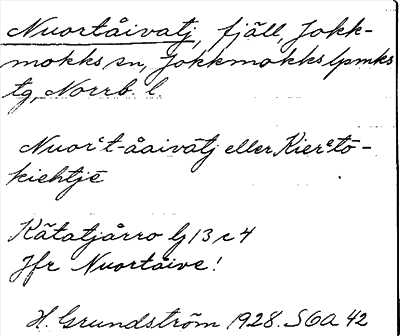 Nuortåivatj, fjäll, Jokk-
mokks sn, Jokkmokks lpmks
tg, Norrb. l.
Nuorꞌt-åaivātj eller Kierᵉtō-
kiehtjē
Kātatjårro bj 13 c 4
Jfr Nuortåive!
H. Grundström 1928. SOA 42